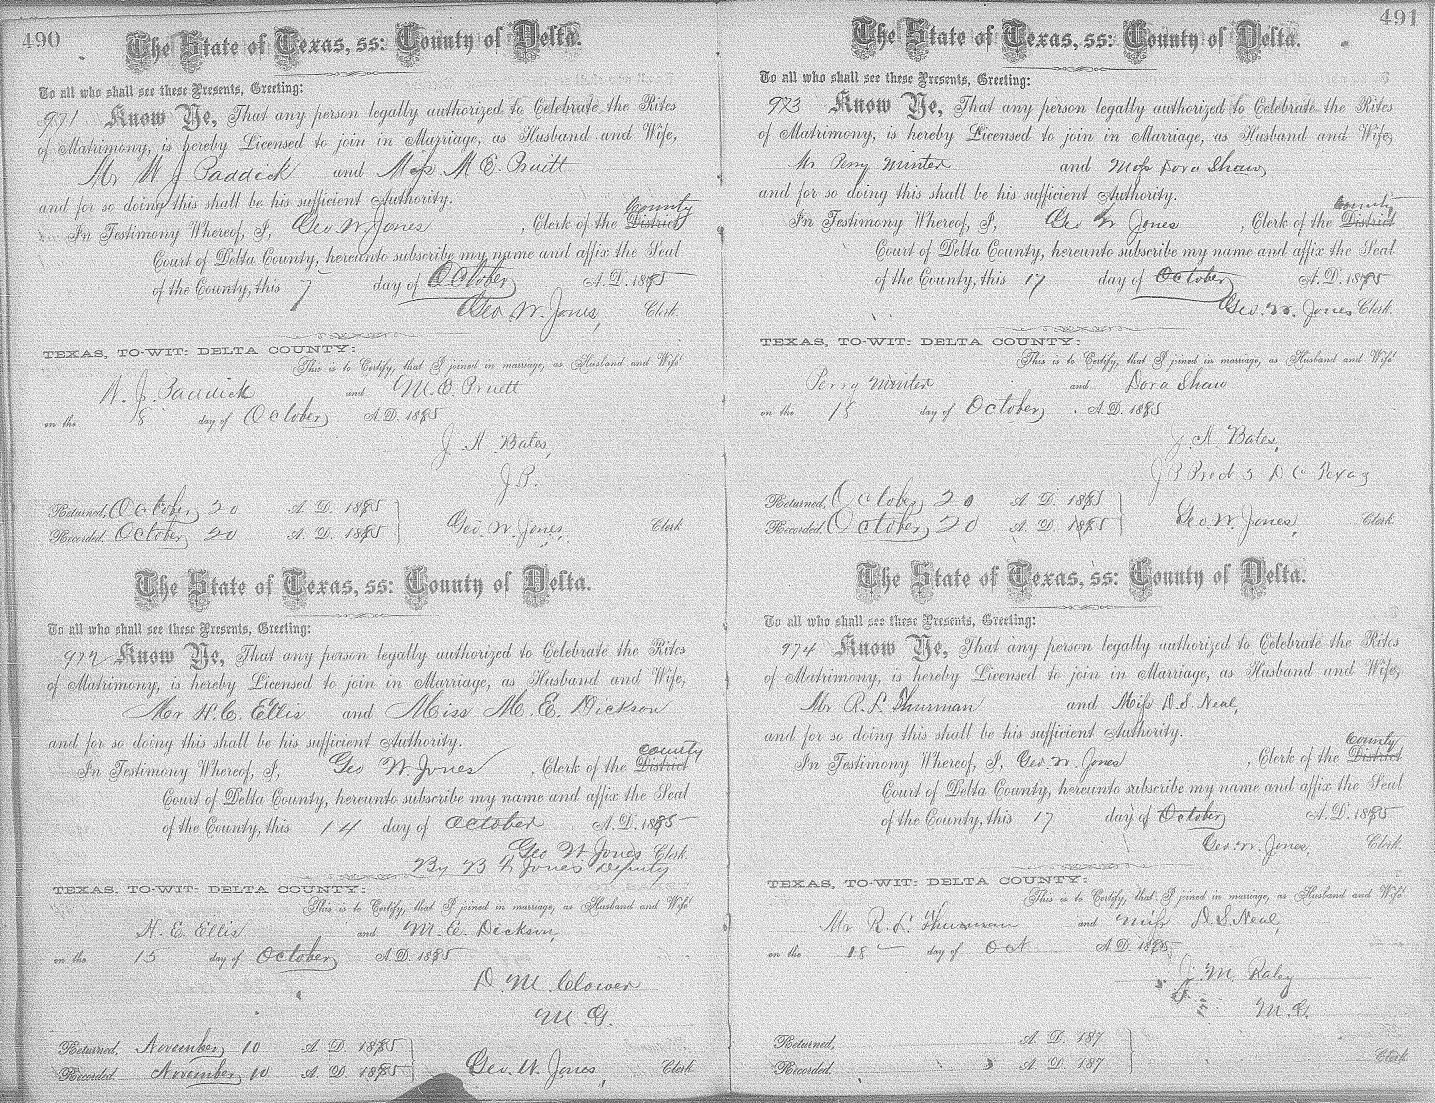 490
The State of Texas, ss: County of Delta.
To all who shall see these Presents, Greeting:
971 Know Ye, That any person legally authorized to Celebrate the Rites
of Matrimony, is hereby Licensed to join in Marriage, as Husband and Wife,
Mr W J Paddick and Miss M E. Pruett
and for so doing this shall be his sufficient Authority.
In Testimony Whereof, I, Geo W Jones, Clerk of the District County
Court of Delta County, hereunto subscribe my name and affix the Seal
of the County, this 7 day of October A. D. 1885
Geo. W. Jones, Clerk.
TEXAS, TO-WIT: DELTA COUNTY:
This is to Certify, that I joined in marriage, as Husband and Wife
W. J. Paddick and M. E. Pruett
on the 8 day of October A. D. 1885
J. A. Bates,
J P.
Returned, October 20 A. D. 1885
Recorded October 20 A. D. 1885 Geo. W. Jones, Clerk
The State of Texas, ss: County of Delta.
To all who shall see these Presents, Greeting:
972 Know Ye, That any person legally authorized to Celebrate the Rites
of Matrimony, is hereby Licensed to join in Marriage, as Husband and Wife,
Mr H. E. Ellis and Miss M. E. Dickson
and for so doing this shall be his sufficient Authority.
In Testimony Whereof, I, Geo W Jones, Clerk of the District County
Court of Delta County, hereunto subscribe my name and affix the Seal
of the County, this 14 day of October A. D. 1885
Geo W Jones Clerk.
By B F Jones Deputy
TEXAS, TO-WIT: DELTA COUNTY:
This is to Certify, that I joined in marriage, as Husband and Wife
H. E. Ellis and M. E. Dickson,
on the 15 day of October A. D. 1885
D. M. Clower
M. G.
Returned, November 10 A. D. 1885
Recorded November 10 A. D. 1885 Geo. W. Jones, Clerk
491
The State of Texas, ss: County of Delta.
To all who shall see these Presents, Greeting:
973 Know Ye, That any person legally authorized to Celebrate the Rites
of Matrimony, is hereby Licensed to join in Marriage, as Husband and Wife,
Mr Perry Winter and Miss Dora Shaw,
and for so doing this shall be his sufficient Authority.
In Testimony Whereof, I, Geo W Jones, Clerk of the District County
Court of Delta County, hereunto subscribe my name and affix the Seal
of the County, this 17 day of October A. D. 1885
Geo. W. Jones Clerk.
TEXAS, TO-WIT: DELTA COUNTY:
This is to Certify, that I joined in marriage, as Husband and Wife
Perry Winter and Dora Shaw
on the 18 day of October A. D. 1885
J. A. Bates,
J P Prect 3 D C Texas
Returned, October 20 A. D. 1885
Recorded October 20 A. D. 1885 Geo W. Jones, Clerk
The State of Texas, ss: County of Delta.
To all who shall see these Presents, Greeting:
974 Know Ye, That any person legally authorized to Celebrate the Rites
of Matrimony, is hereby Licensed to join in Marriage, as Husband and Wife,
Mr R. L. Thurman and Miss D. S. Neal,
and for so doing this shall be his sufficient Authority.
In Testimony Whereof, I, Geo. W. Jones, Clerk of the District County
Court of Delta County, hereunto subscribe my name and affix the Seal
of the County, this 17 day of October A. D. 1885
Geo. W. Jones, Clerk.
TEXAS, TO-WIT: DELTA COUNTY:
This is to Certify, that I joined in marriage, as Husband and Wife
Mr. R. L. Thurman and Miss D. S. Neal,
on the 18 day of Oct A. D. 1885
J. M. Raley
M. G.
Returned, A. D. 187
Recorded A. D. 187 Clerk